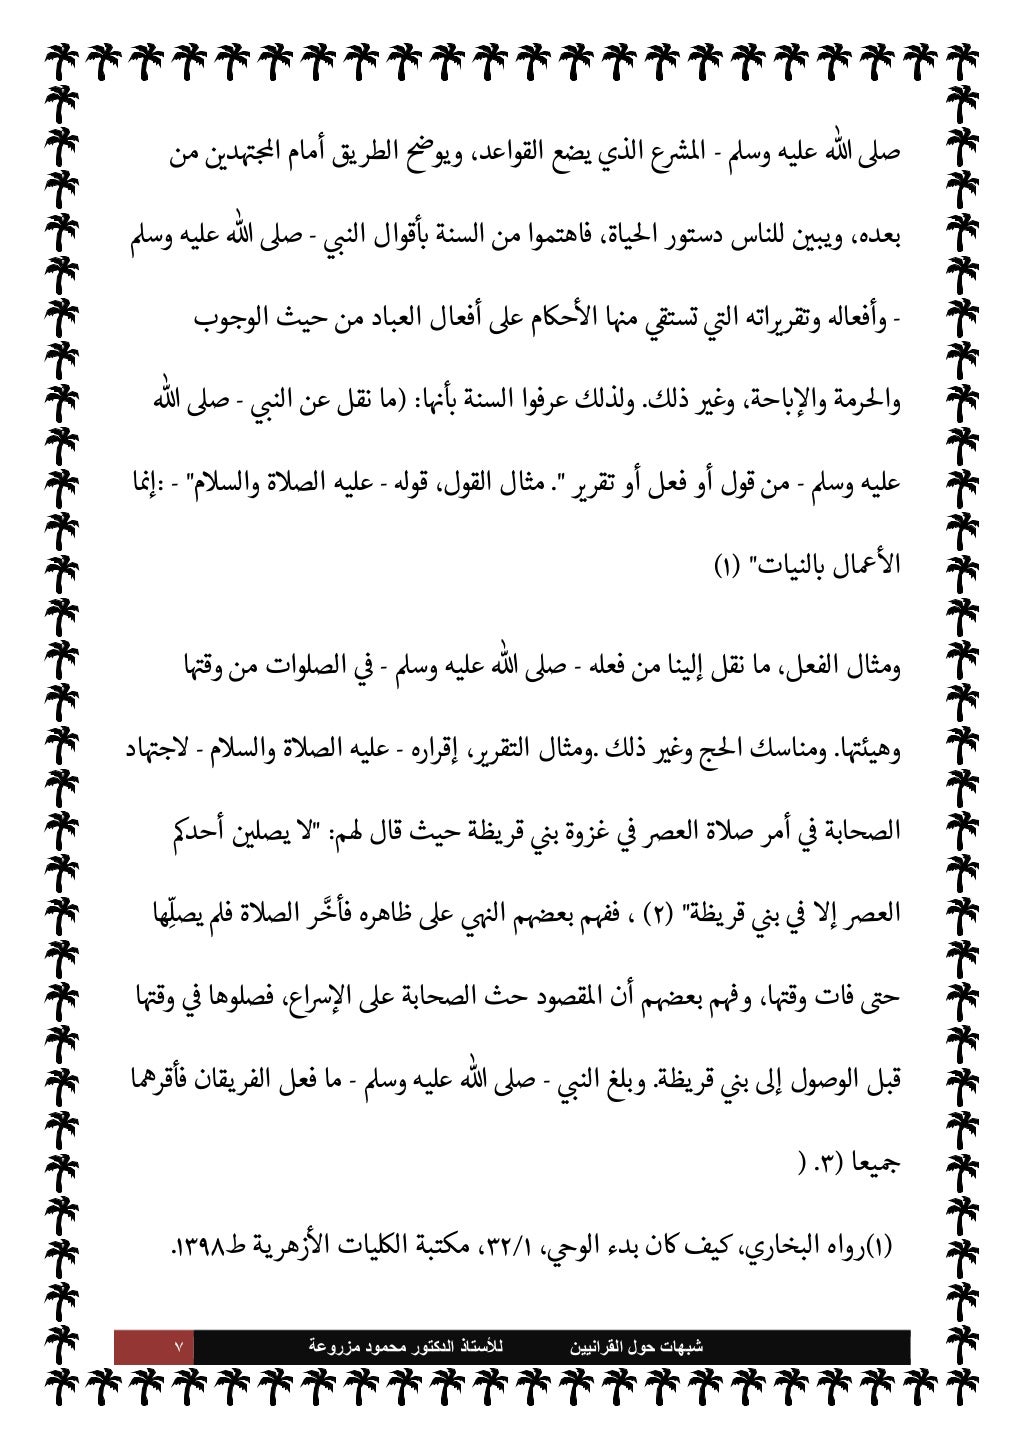 صلى الله عليه وسلم - المشرع الذي يضع القواعد، ويوضح الطريق أمام المجتهدين من
بعده، ويبين للناس دستور الحياة، فاهتموا من السنة بأقوال النبي - صلى الله عليه وسلم
- وأفعاله وتقريراته التي تستقي منها الأحكام على أفعال العباد من حيث الوجوب
والحرمة والإباحة، وغير ذلك. ولذلك عرفوا السنة بأنها: (ما نقل عن النبي - صلى الله
عليه وسلم - من قول أو فعل أو تقرير ". مثال القول، قوله - عليه الصلاة والسلام" - :إنما
الأعمال بالنيات" (١)
ومثال الفعل، ما نقل إلينا من فعله - صلى الله عليه وسلم - في الصلوات من وقتها
وهيئتها. ومناسك الحج وغير ذلك .ومثال التقرير، إقراره - عليه الصلاة والسلام - لاجتهاد
الصحابة في أمر صلاة العصر في غزوة بني قريظة حيث قال لهم: "لا يصلين أحدكم
العصر إلا في بني قريظة" (٢) ، ففهم بعضهم النهي على ظاهره فأخَّر الصلاة فلم يصلِّها
حتى فات وقتها، وفهم بعضهم أن المقصود حث الصحابة على الإسراع، فصلوها في وقتها
قبل الوصول إلى بني قريظة. وبلغ النبي - صلى الله عليه وسلم - ما فعل الفريقان فأقرهما
جميعا (٣. (
(١)رواه البخاري، كيف كان بدء الوحي، ٣٢/١، مكتبة الكليات الأزهرية ط١٣٩٨.
شبهات حول القرانيين للأستاذ الدكتور محمود مزروعة ٧